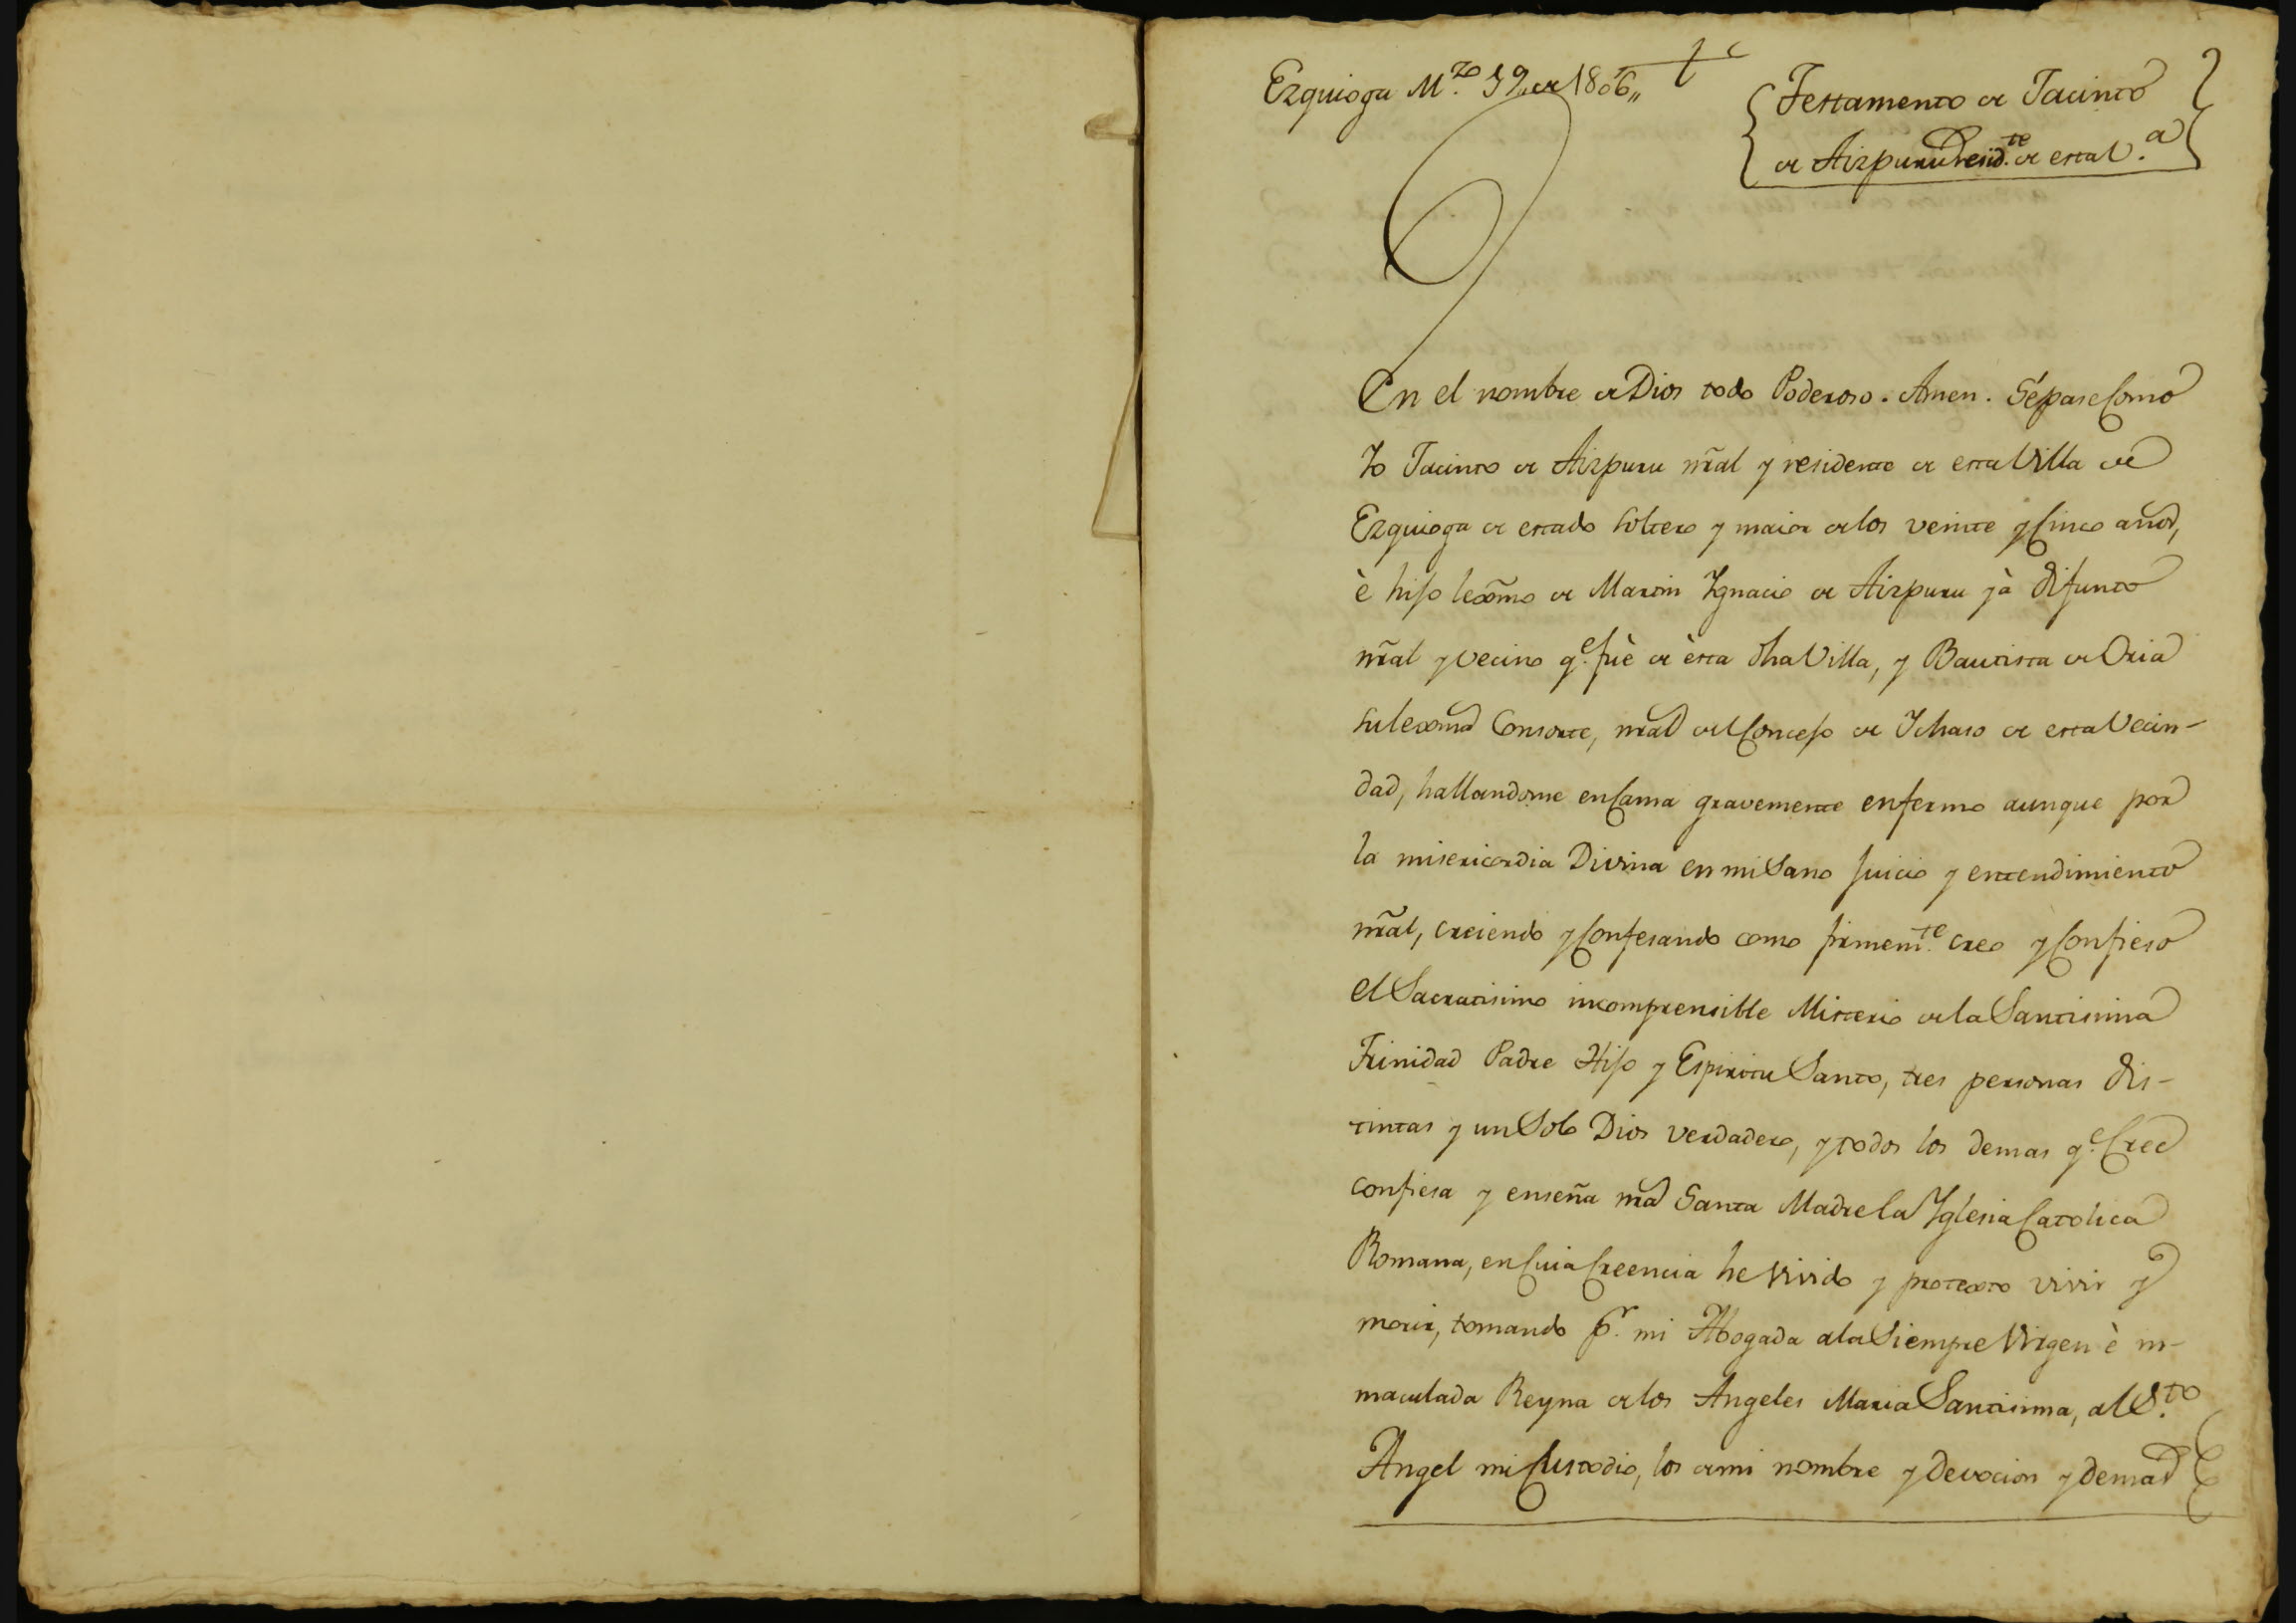 Ezquioga M.zo 19 de 1806,,
Testamento de Jacinto
de Aizpuru resid.te de esta V.a
En el nombre de Dios todo Poderoso. Amen. Sépase Como
Yo Jacinto de Aizpuru nr̃al y residente de esta Villa de
Ezquioga de estado soltero y maior de los veinte y Cinco años,
è hijo lexm̃o de Martin Ygnacio de Aizpuru yà difunto
nr̃al y Vecino q.e fuè de èsta dha Villa, y Bautista de Oria
su lexma Consorte, nral del Concejo de Ychaso de esta Vecin-
dad, hallandome en Cama gravemente enfermo aunque por
la misericordia Divina en mi Sano Juicio y entendimiento
nr̃al, creiendo y Confesando como firmem.te creo y Confieso
el Sacratisimo incomprensible Misterio de la Santisima
Trinidad Padre Hijo y Espiritu Santo, tres personas dis-
tintas y un Solo Dios verdadero, y todos los demas q.e Cree
confiesa y enseña nra Santa Madre la Yglesia Catolica
Romana, en Cuia Creencia he vivido y protexto vivir y
morir, tomando p.r mi Abogada a la Siempre Virgen è in-
maculada Reyna de los Angeles Maria Santisima, al S.to
Angel mi Custodio, los de mi nombre y Devocion y demas